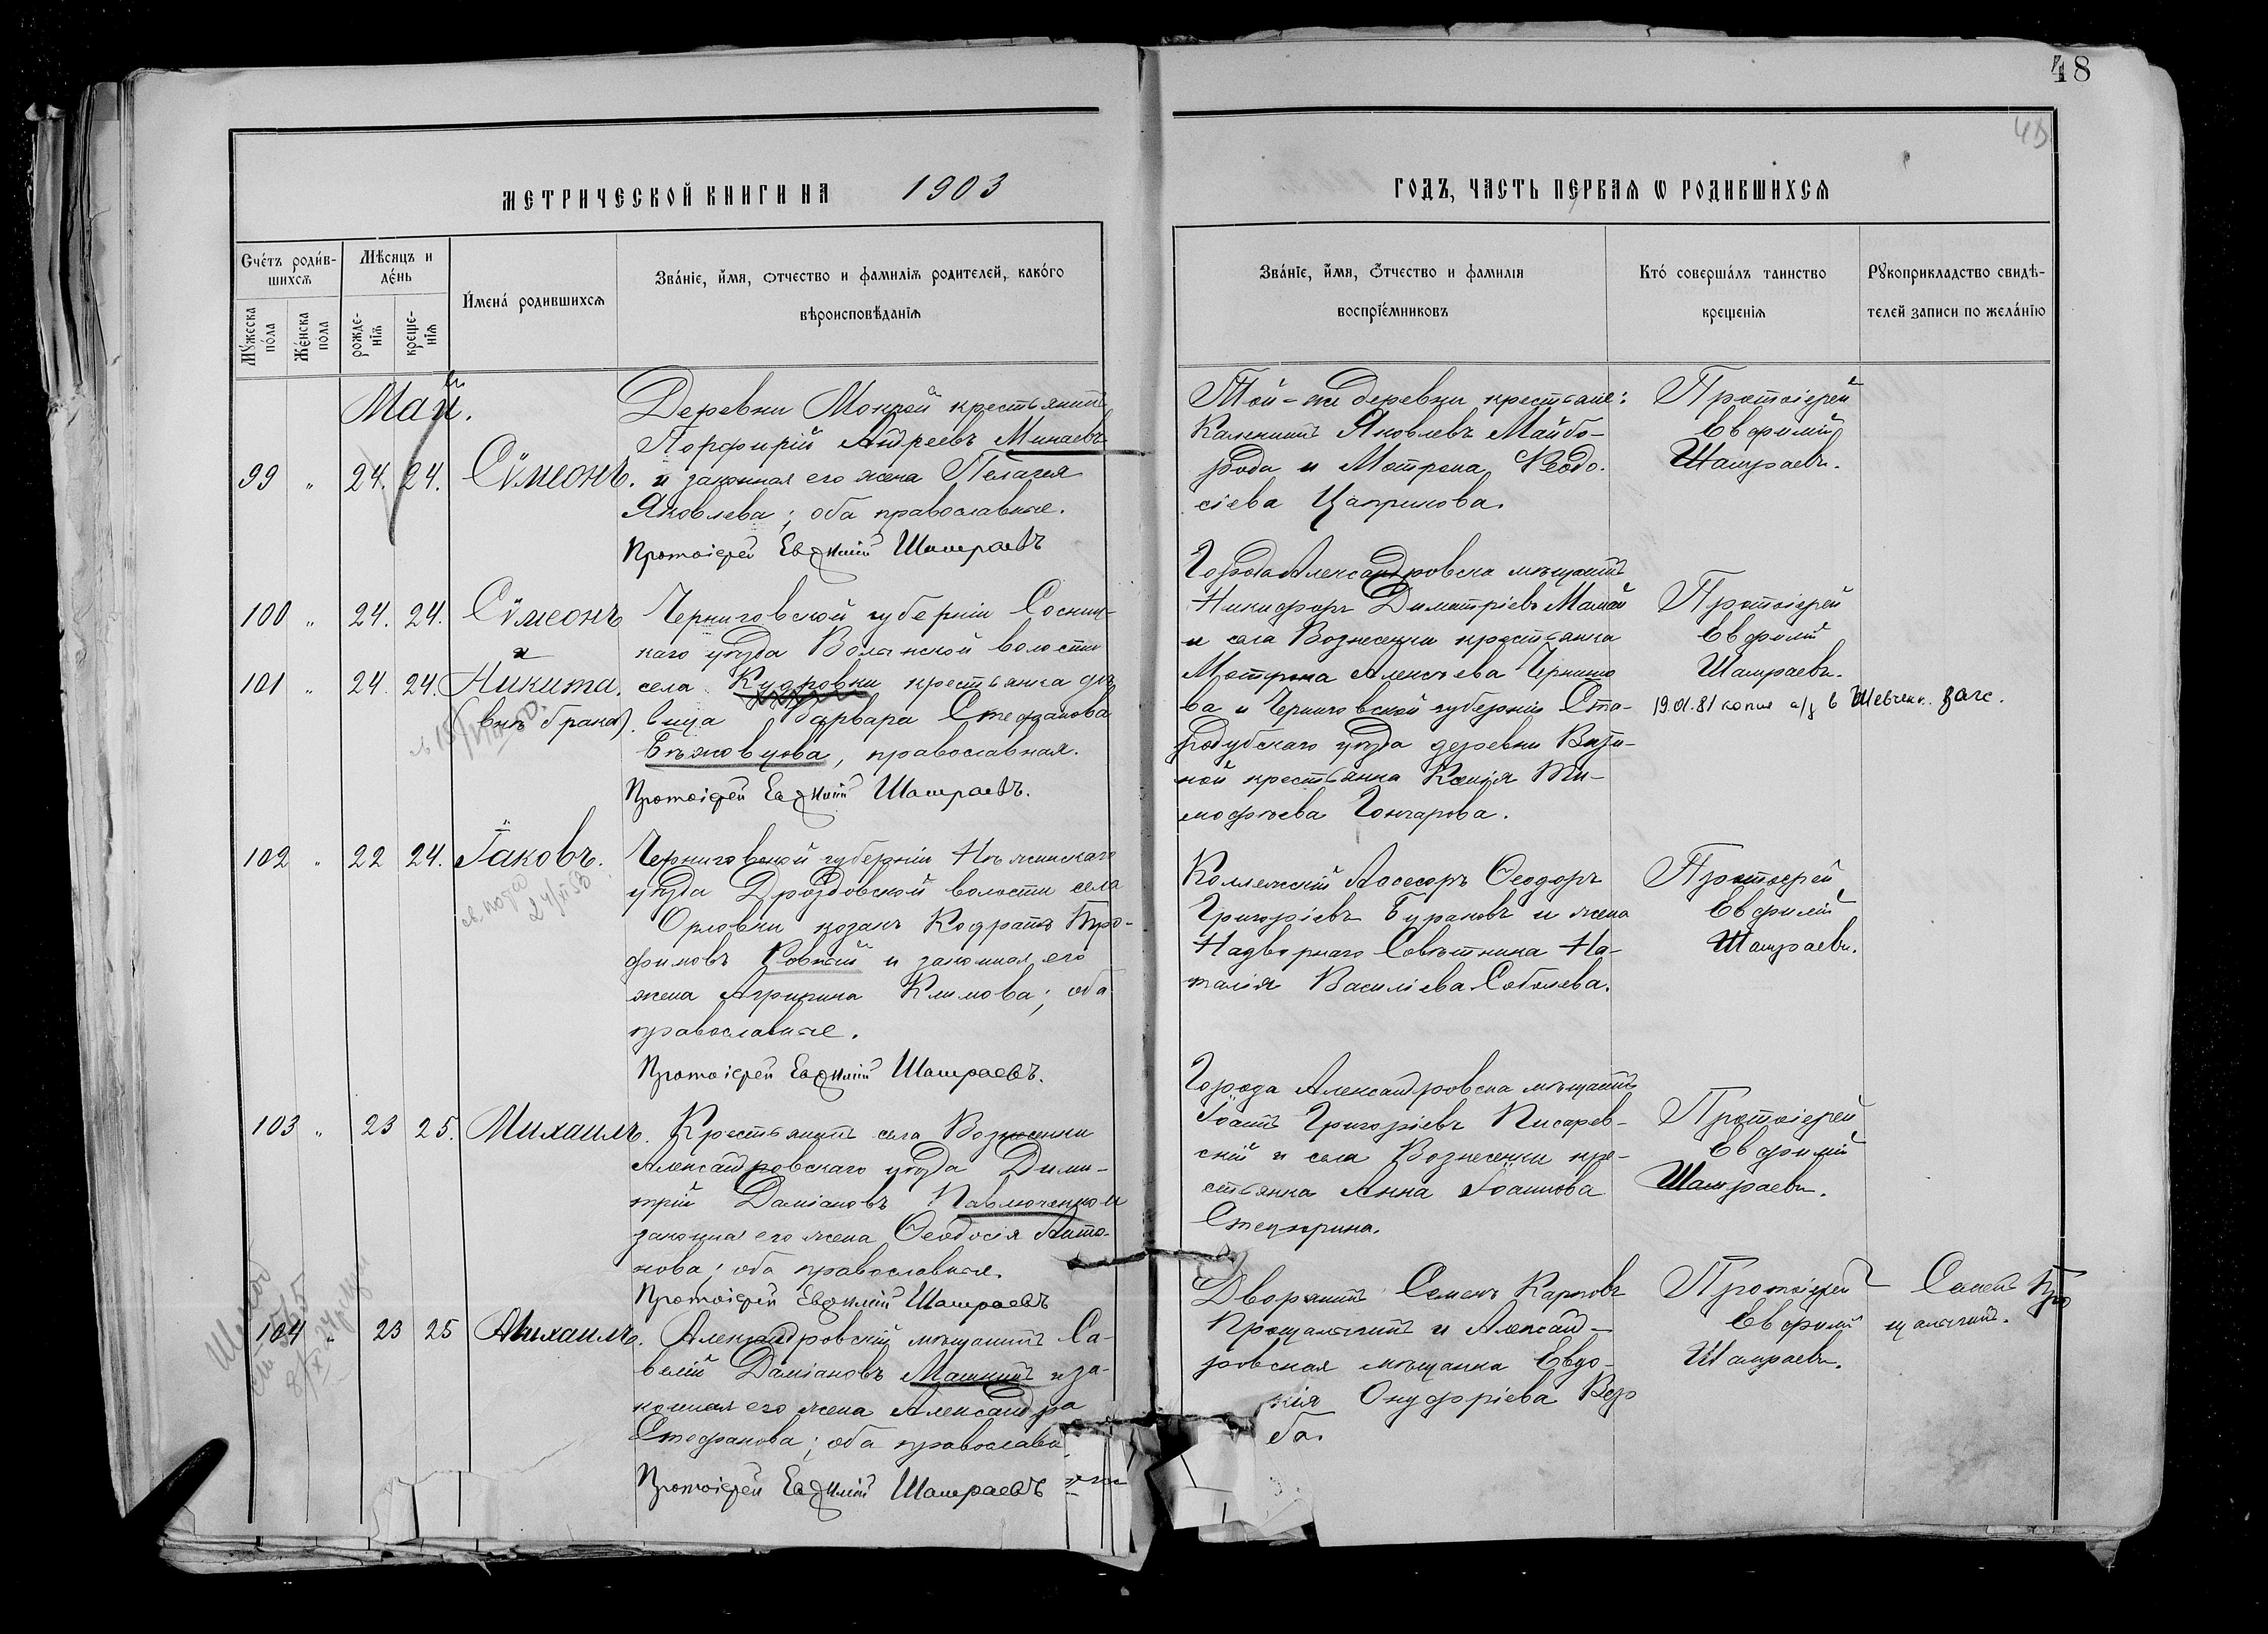 48
МЕТРИЧЕСКОЙ КНИГИ НА 1903
ГОДЪ, ЧАСТЬ ПЕРВАѦ Ѡ РОДИВШИХСѦ
Счétъ роди́вшихсѧ
Мꙋ́жеска по́ла
Же́нска пола
Мѣ́сяцъ и де́нь
рожде-нїѧ
креще-нїѧ
И́мена́ родившихсѧ
Зва́нїе, и́мя, ѻтчество и фамилїѧ родителей, како́го
вѣроисповѣ́данїѧ
Зва́нїе, и́мя, ѻ́тчество и фамилїя
воспрїе́мниковъ
Кто́ соверша́лъ таинство
крещенїѧ
Рꙋкоприкладство свидѣ-
телей записи по жела́нїю
Май.
99 „ 24. 24. Сѵмеонъ.
Деревни Мокрой крестьянинъ
Порфирій Андреевъ Минаевъ
и законная его жена Пелагея
Яковлева; оба православные.
Протоіерей Евѳимій Шамраевъ
Той-же деревни крестьяне:
Каленикъ Яковлевъ Майбо-
рода и Мотрона Ѳеодо-
сіева Цапринова.
Протоіерей
Евфимій
Шамраевъ.
100 „ 24. 24. Сѵмеонъ
и
101 „ 24. 24. Никита.
(внѣ брака).
Черниговской губерніи Сосниц-
каго уѣзда Волынской волости
села Кудровки крестьянка дѣ-
вица Варвара Стефанова
Бѣяковцова, православная.
Протоіерей Евѳимій Шамраевъ.
Города Александровска мѣщанинъ
Никифоръ Димитріевъ Мамай
и села Вознесенки крестьянка
Мотрона Алексѣева Чернышо
ва и Черниговской губерніи Ста-
родубскаго уѣзда деревни
ной крестьянка Ксенія Ти-
мофѣева Гончарова.
Протоіерей
Евфимій
Шамраевъ.
19.01.81 копия а/з в Шевченк. загс.
102 „ 22 24. Іаковъ.
Черниговской губерніи Нѣжинскаго
уѣзда Дроздовской волости села
Орловки козакъ Кодратъ Тро-
фимовъ Ровный и законная его
жена Агрипина Климова; оба
православные.
Протоіерей Евѳимій Шамраевъ.
Коллежскій Асесоръ Ѳеодоръ
Григоріевъ Бураковъ и жена
Надворнаго Совѣтника На-
талія Василіева Соболева.
Протоіерей
Евфимій
Шамраевъ.
103 „ 23 25. Михаилъ.
Крестьянинъ села Вознесенки
Александровскаго уѣзда Дими-
трій Даміановъ Павлюченко и
законная его жена Ѳеодосія Анто-
нова; оба православные.
Протоіерей Евѳимій Шамраевъ
Города Александровска мѣщанинъ
Іоаннъ Григоріевъ Писарев-
скій и села Вознесенки кре-
стьянка Анна Іоаннова
Стецюрина.
Протоіерей
Евфимій
Шамраевъ.
104 „ 23 25 Михаилъ.
Александровскій мѣщанинъ Са-
велій Даміановъ Машкинъ и за-
конная его жена Александра
Стефанова; оба православн
ые
Протоіерей Евѳимій Шамраевъ
Дворянинъ Семенъ Карповъ
Прощалыгинъ и Александ-
ровская мѣщанка Евдо-
кія Онуфріева Вер
ба.
Протоіерей
Евфимій
Шамраевъ.
Семенъ Про
щалыгинъ.